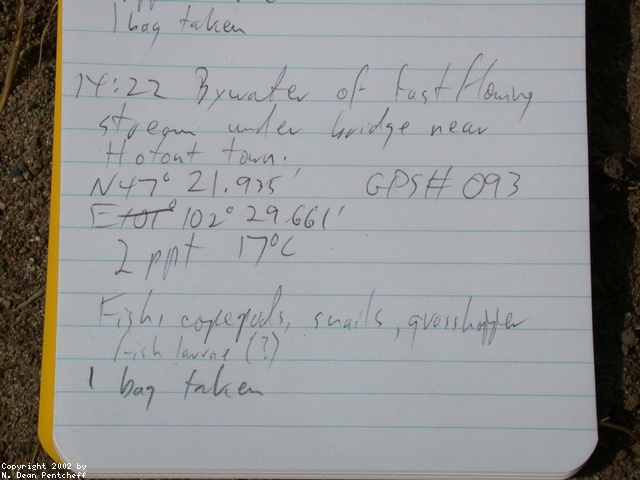 1 bag taken
14:22 Bywater of fast flowing
stream under bridge near
Hotont town.
N47° 21.935' GPS# 093
E 101° 102° 29.661'
2 ppt 17°C
Fish, copepods, snails, grasshopper
fish larvae (?)
1 bag taken
Copyright 2002 by
N. Dean Pentcheff